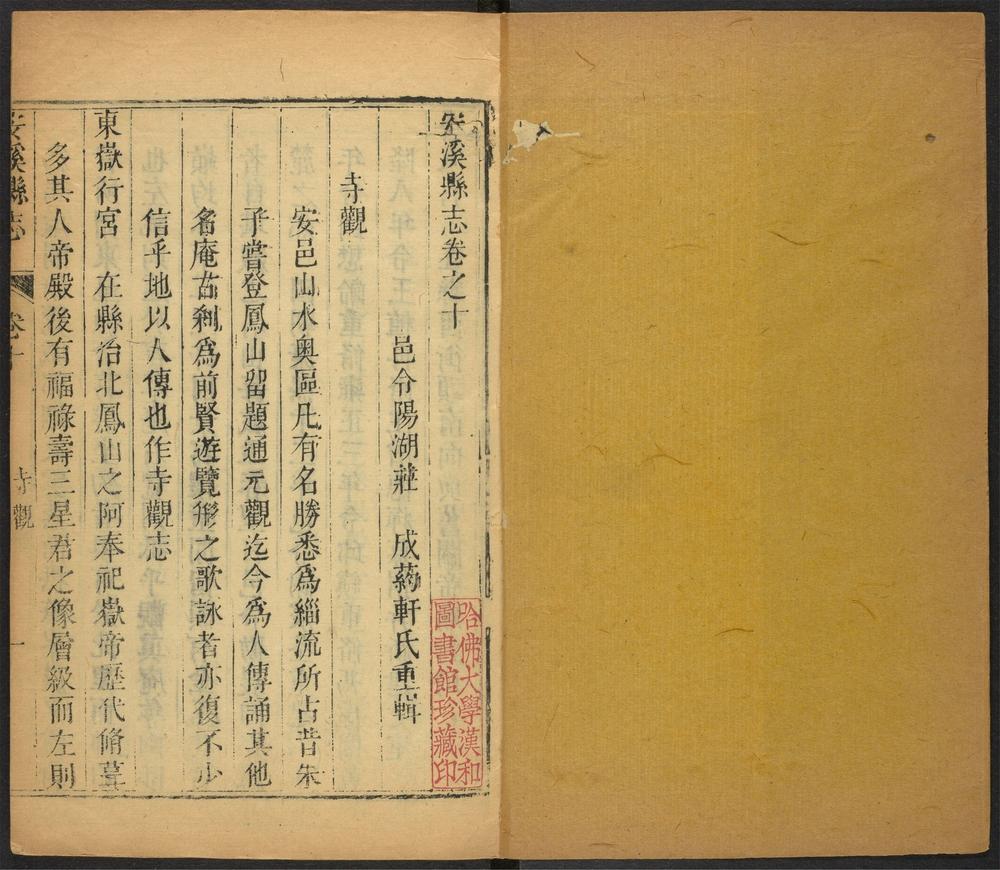 安溪縣志卷之十
邑令陽湖莊　成葯軒氏重輯
寺觀
安邑山水奧區凡有名勝悉爲緇流所占昔朱
子嘗登鳳山留題通元觀迄今爲人傳誦其他
名庵古刹爲前賢遊覽形之歌詠者亦復不少
信乎地以人傳也作寺觀志
東嶽行宮　在縣治北鳳山之阿奉祀嶽帝歷代脩葺
多其人帝殿後有福祿壽三星君之像層級而左則
安溪縣志　卷十　寺觀　一
哈佛大學漢和
圖書館珍藏印